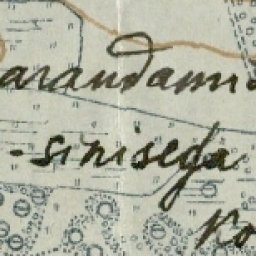 arandami
-sinisega
Ko